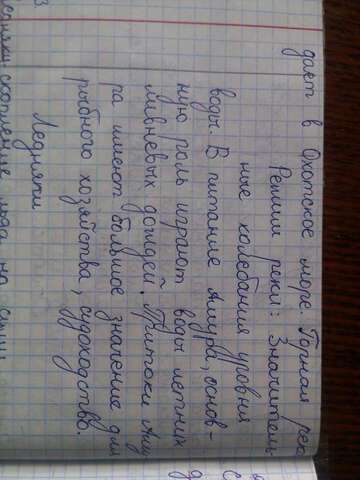 дает в Охотское море. Горная река
Режим реки: Значитель-
ные колебания уровня
воды. В питание Амура, основ-
ную роль играют воды летних
ливневых дождей. Притоки Аму
ра имеют большое значение для
рыбного хозяйства, судоходство.
Ледники
скопление льда на суши